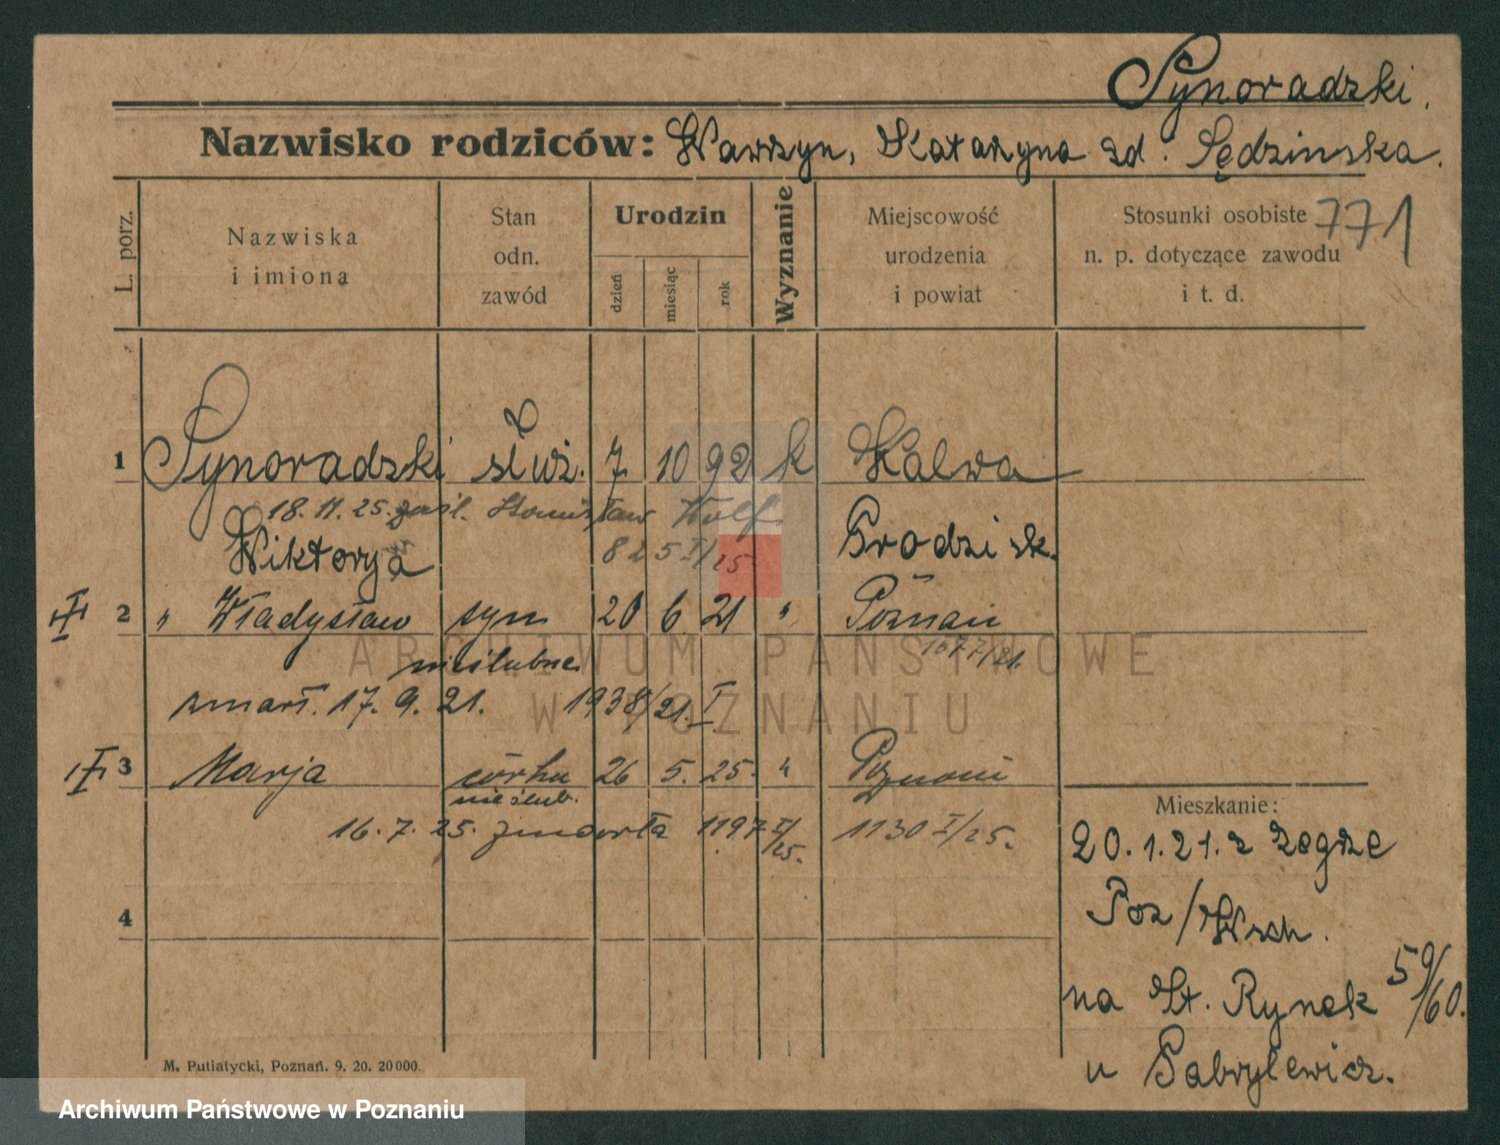 Synoradzki.
Nazwisko rodziców: Wawrzyn, Katarzyna zd. Sędzinska.
L. porz.
Nazwiska i imiona
Stan odn. zawód
Urodzin
dzień miesiąc rok
Wyznanie
Miejscowość urodzenia i powiat
Stosunki osobiste n. p. dotyczące zawodu i t. d.
771
1 Synoradzki służ. 7 10 92 k Kalwa
18. 11. 25. zaśl. Stanisław Wolf
Wiktorja 825 I/25 Grodzisk.
2 " Władysław syn 20 6 21 " Poznań
nieślubne 1077/21.
zmarł. 17. 9. 21. 1938/21. I
3 Marja córka 26 5. 25. " Poznań
nieślub.
16. 7. 25. zmarła 1197 I/25. 1130 I/25.
4
Mieszkanie:
20. 1. 21. z Zegrze
Poz/Wsch.
na St. Rynek 59/60.
u Gabrylewicz.
M. Putiatycki, Poznań. 9. 20. 20000.
ARCHIWUM PAŃSTWOWE
W POZNANIU
Archiwum Państwowe w Poznaniu